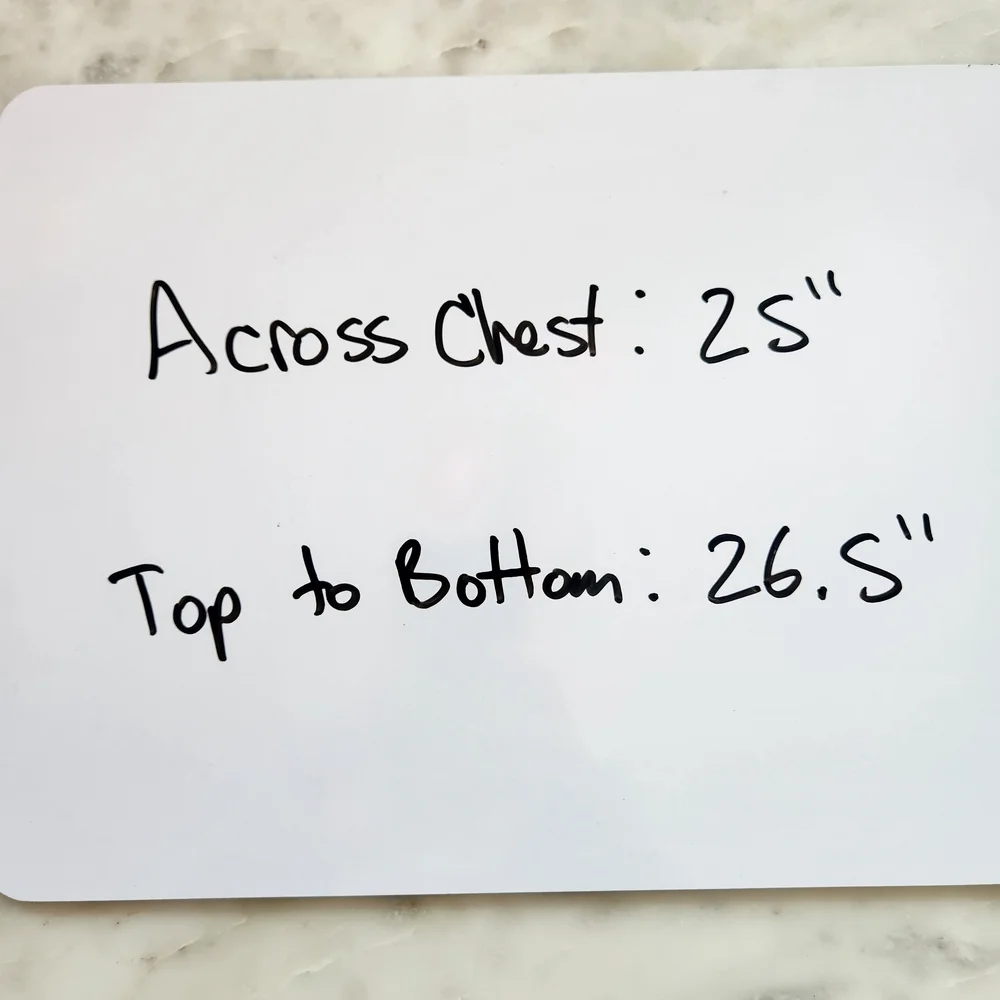 Across Chest: 25"
Top to Bottom: 26.5"